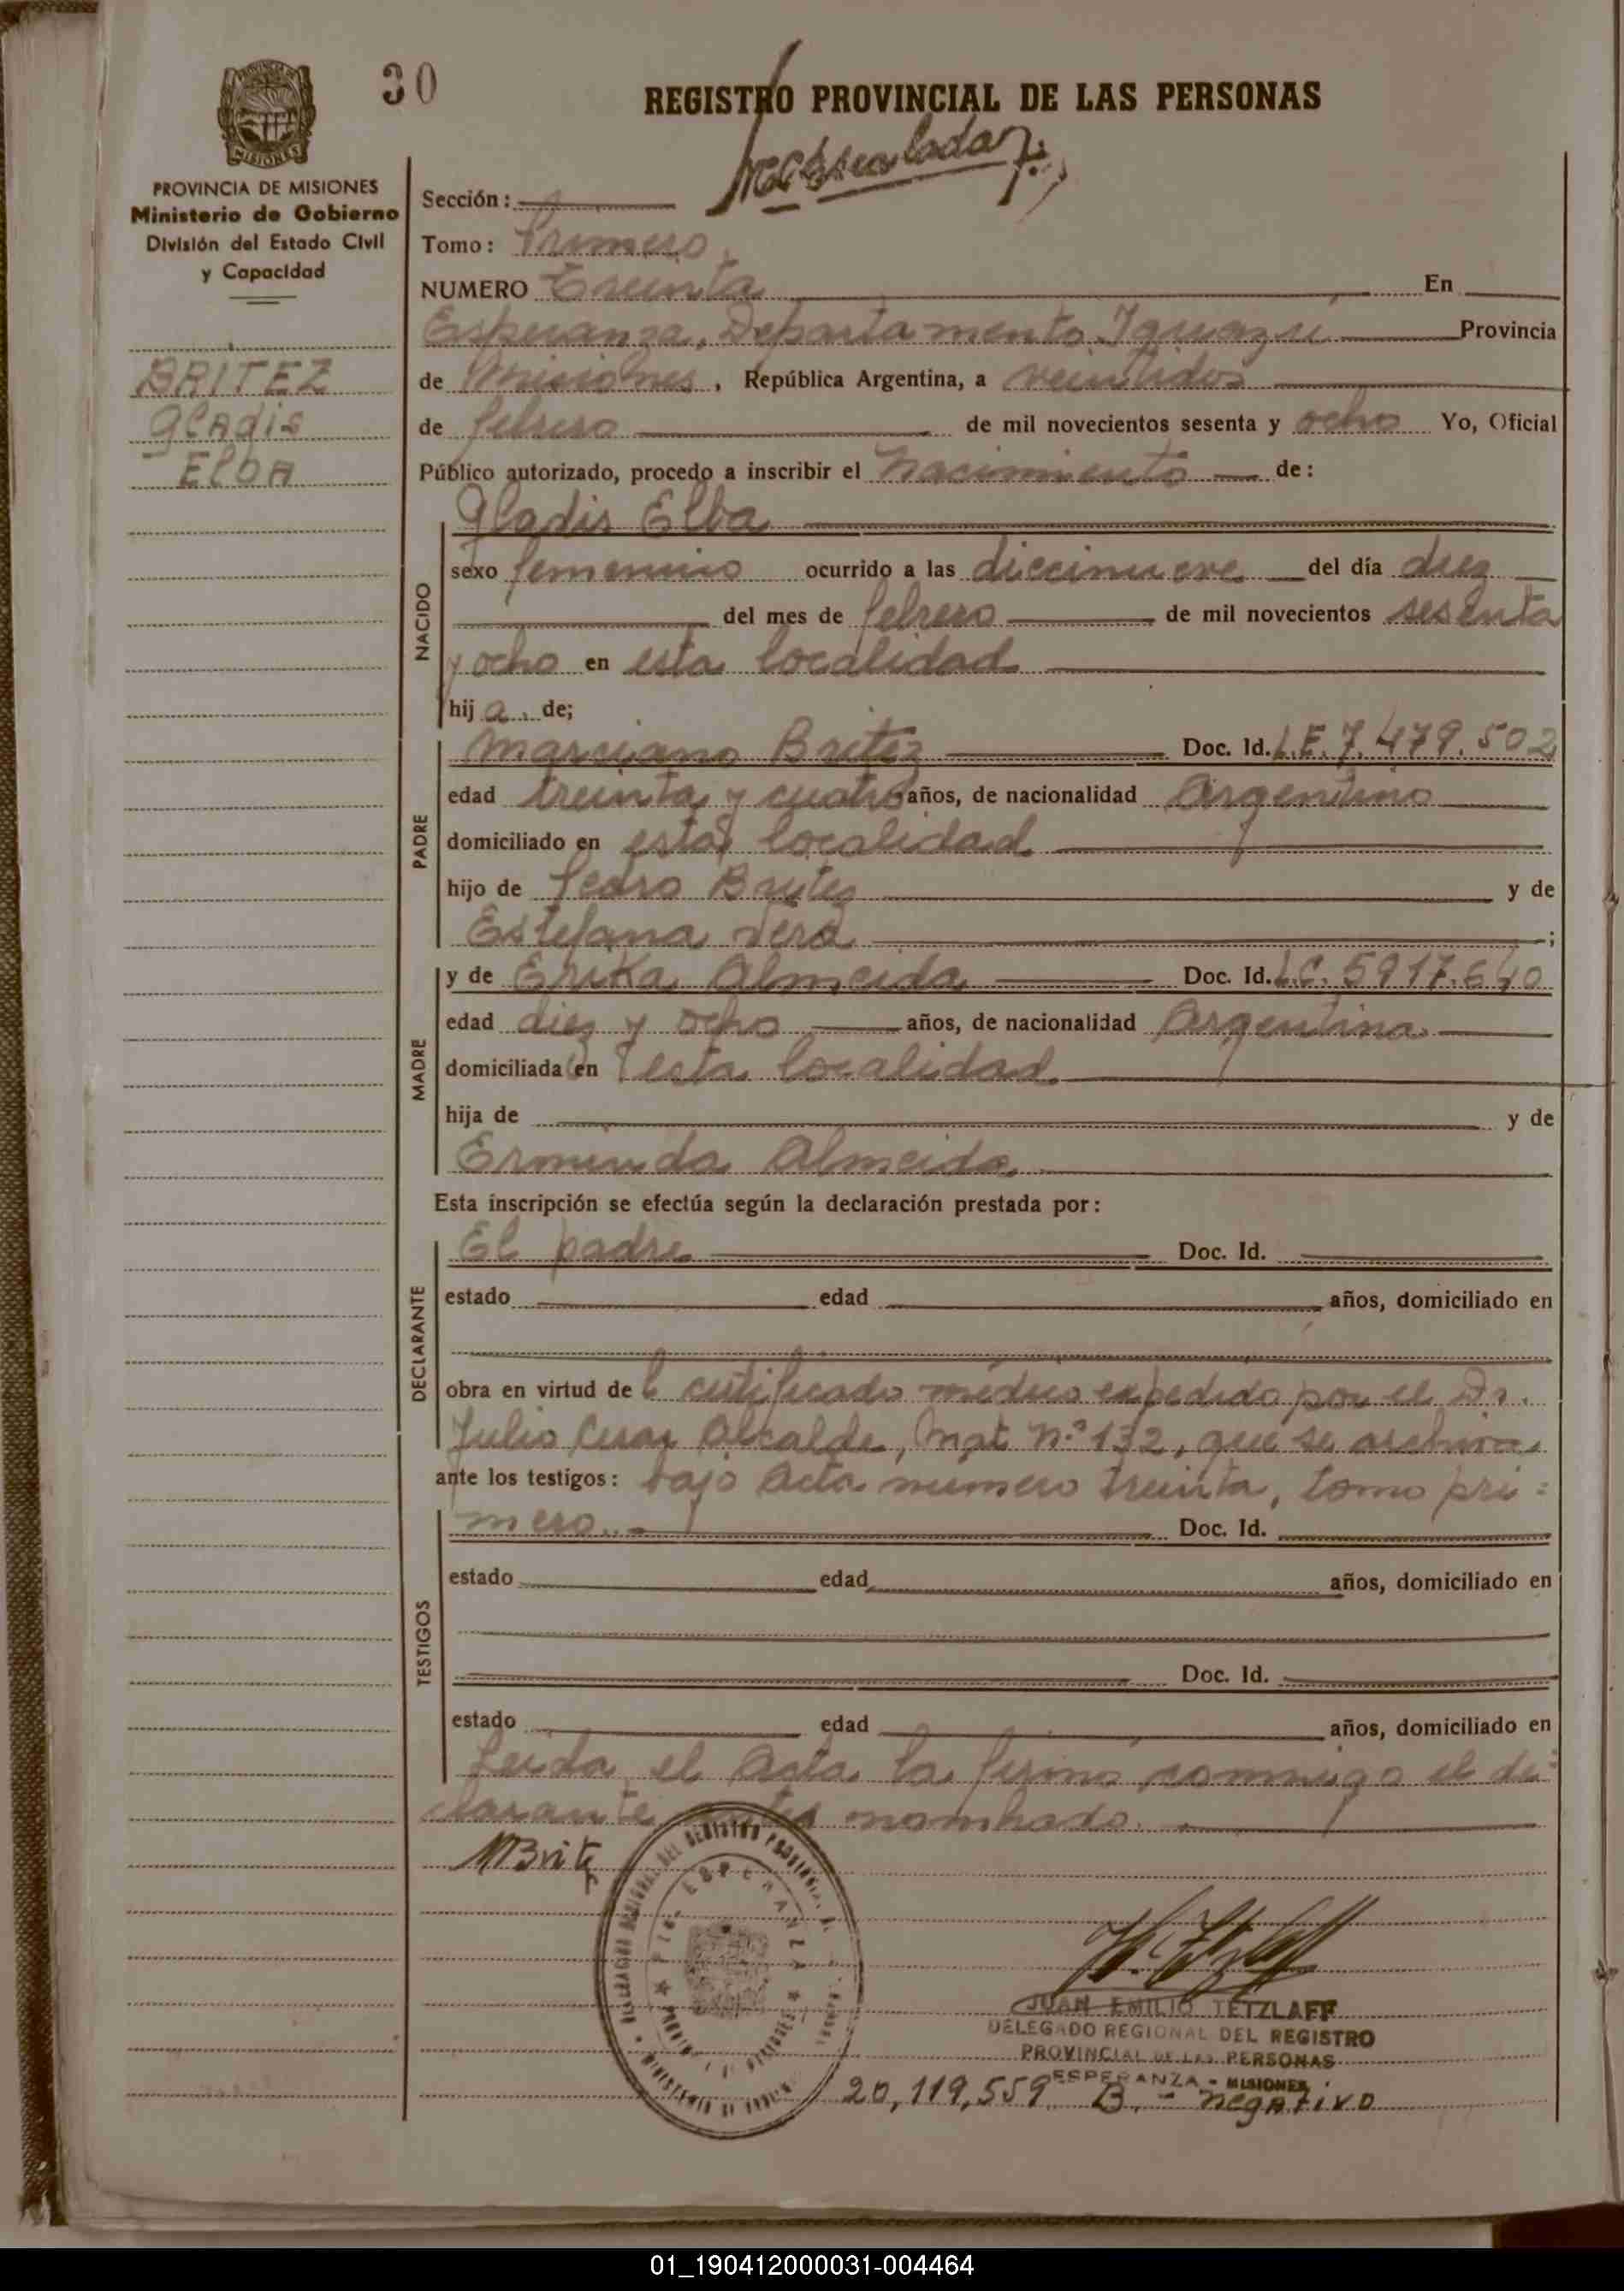 30
REGISTRO PROVINCIAL DE LAS PERSONAS
MISIONES
PROVINCIA DE MISIONES
Ministerio de Gobierno
División del Estado Civil
y Capacidad
BRITEZ
Gladis
Elba
Sección:
Tomo: Primero
NUMERO Treinta En
Esperanza, Departamento Iguazú Provincia
de Misiones, República Argentina, a veintidos
de febrero de mil novecientos sesenta y ocho Yo, Oficial
Público autorizado, procedo a inscribir el Nacimiento de:
Gladis Elba
NACIDO
sexo femenino ocurrido a las diecinueve del día diez
del mes de febrero de mil novecientos sesenta
y ocho en esta localidad
hija. de;
PADRE
Marciano Britez Doc. Id. L.E. 7.479.502
edad treinta y cuatro años, de nacionalidad Argentino
domiciliado en esta localidad
hijo de Pedro Britez y de
Estefana Vera ;
MADRE
y de Erika Almeida Doc. Id. L.C. 5917.640
edad diez y ocho años, de nacionalidad Argentina
domiciliada en esta localidad
hija de y de
Erminda Almeida
Esta inscripción se efectúa según la declaración prestada por:
DECLARANTE
El padre Doc. Id.
estado edad años, domiciliado en
obra en virtud del certificado médico expedido por el Dr.
Julio Cesar Alcalde, Mat. Nº 132, que se archiva
ante los testigos: bajo Acta numero treinta, tomo pri=
TESTIGOS
mero.- Doc. Id.
estado edad años, domiciliado en
Doc. Id.
estado edad años, domiciliado en
Leida el Acta la firma conmigo el de=
clarante antes nombrado.
MBritz
ESPERANZA
JUAN EMILIO TETZLAFF
DELEGADO REGIONAL DEL REGISTRO
PROVINCIAL DE LAS PERSONAS
ESPERANZA - MISIONES
20,119,559 B.- negativo
01_190412000031-004464